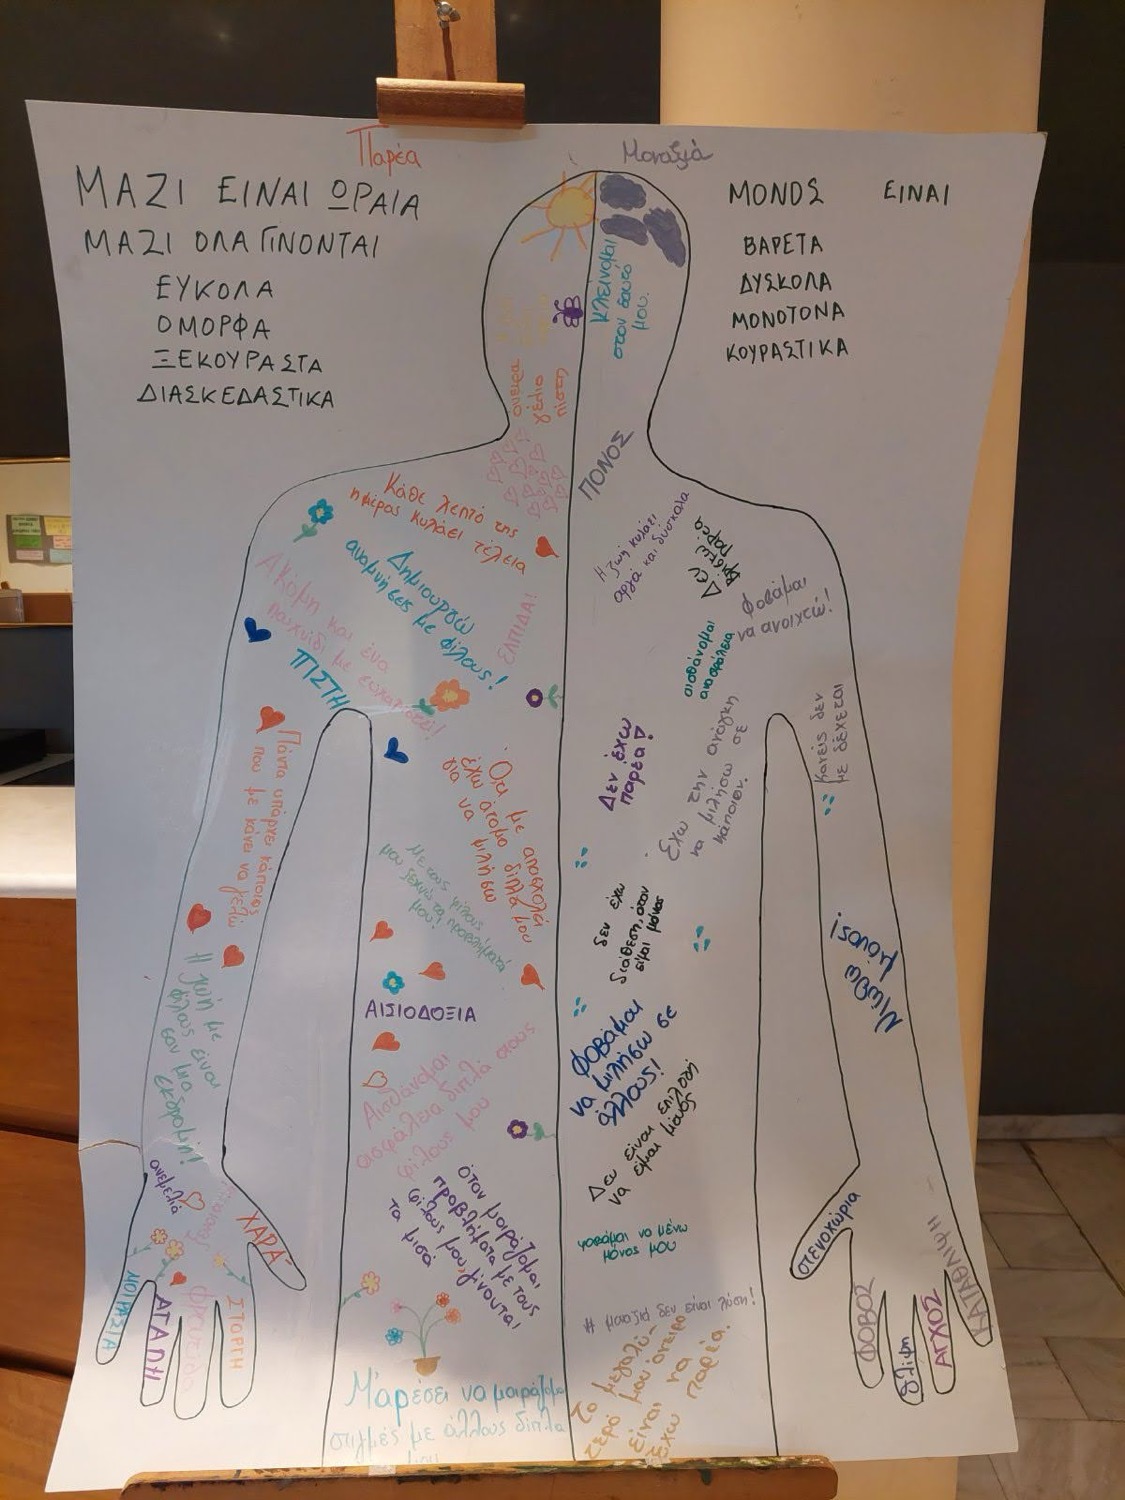 Παρέα
ΜΑΖΙ ΕΙΝΑΙ ΩΡΑΙΑ
ΜΑΖΙ ΟΛΑ ΓΙΝΟΝΤΑΙ
ΕΥΚΟΛΑ
ΟΜΟΡΦΑ
ΞΕΚΟΥΡΑΣΤΑ
ΔΙΑΣΚΕΔΑΣΤΙΚΑ
Μοναξιά
ΜΟΝΟΣ ΕΙΝΑΙ
ΒΑΡΕΤΑ
ΔΥΣΚΟΛΑ
ΜΟΝΟΤΟΝΑ
ΚΟΥΡΑΣΤΙΚΑ
όνειρα
γέλιο
πίστη
Κάθε λεπτό της
ημέρας κυλάει τέλεια
Δημιουργώ
αναμνήσεις με φίλους!
Ακόμη και ένα
παιχνίδι με
ΕΛΠΙΔΑ!
ΠΙΣΤΗ
Πάντα υπάρχει κάποιος
που με κάνει να γελώ
Ότι με απασχολεί
έχω άτομο δίπλα μου
για να μιλήσω
Με τους φίλους
μου ξεχνώ τα προβλήματά
μου!
ΑΙΣΙΟΔΟΞΙΑ
Η ζωή με
φίλους είναι
σαν μια
εκδρομή!
Αισθάνομαι
ασφάλεια δίπλα στους
φίλους μου
όταν μοιράζομαι
προβλήματα με τους
φίλους μου, γίνονται
τα μισά
ανεμελιά
ΧΑΡΑ
ΜΟΙΡΑΣΙΑ
ΑΓΑΠΗ
ΣΤΟΡΓΗ
Μ'αρέσει να μοιράζομαι
στιγμές με άλλους δίπλα
μου
κλείνομαι
στον εαυτό
μου.
ΠΟΝΟΣ
Η ζωή κυλάει
αργά και δύσκολα
Δεν
βρίσκω
παρέα
Φοβάμαι
να ανοιχτώ!
αισθάνομαι
ανασφάλεια
Δεν έχω
παρέα!
Έχω την ανάγκη
να μιλήσω σε
κάποιον.
κανείς δεν
με δέχεται
δεν έχω
διάθεση, όταν
είμαι μόνος
Νιώθω
μόνος!
Φοβάμαι
να μιλήσω σε
άλλους!
Δεν είναι επιλογή
να είμαι μόνος
φοβάμαι να μένω
μόνος μου
# μοναξιά δεν είναι λύση!
Το μεγαλύ-
τερό μου όνειρο
είναι να
έχω παρέα.
στενοχώρια
ΦΟΒΟΣ
θλίψη
ΑΓΧΟΣ
ΚΑΤΑΘΛΙΨΗ